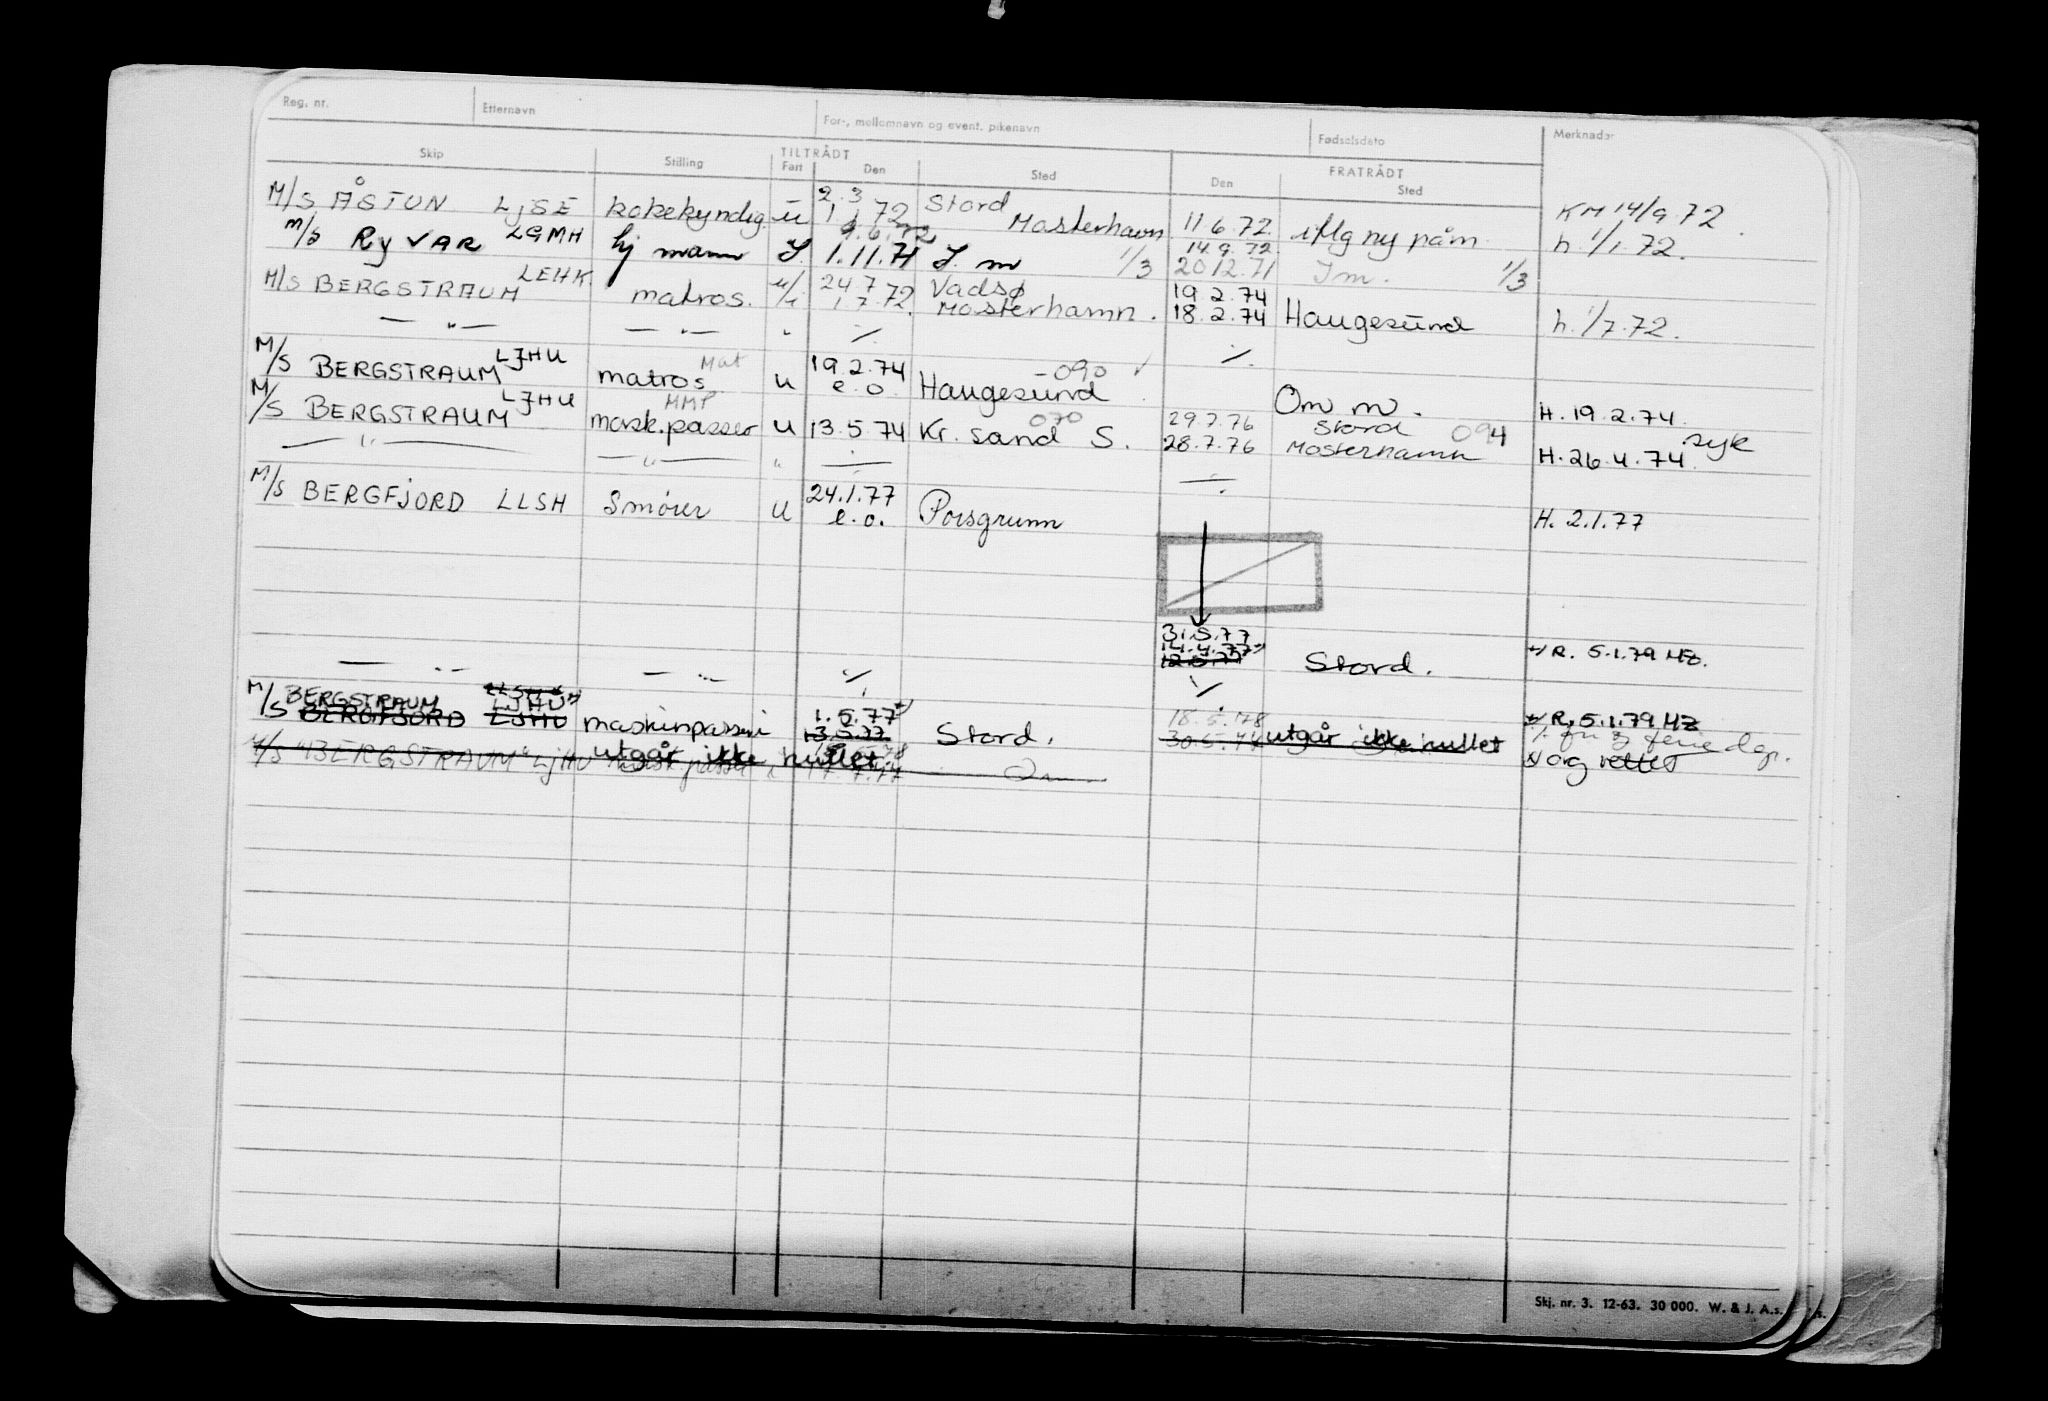 Reg. nr. Etternavn For-, mellomnavn og event. pikenavn Fødselsdato Merknader
Skip Stilling TILTRÅDT FRATRÅDT
Fart Den Sted Den Sted
2.3 Stord
M/S ÅSTUN LJSE kokekyndig u 1.1.72 Mosterhavn 11.6.72 iflg ny påm. KM 14/9.72
M/S RYVAR LGMH hj mann 1.11.71 1/3 14.9.72 20.12.71 1/3 h. 1/1.72.
M/S BERGSTRAUM LEHK matros. 24.7 Vadsø 19.2.74
1.7.72. Mosterhamn. 18.2.74 Haugesund h. 1/7.72.
— " — — " — " ./. ./.
M/S BERGSTRAUM LJHU matros Mat u 19.2.74 e.o. Haugesund 090 Om m. H. 19.2.74.
M/S BERGSTRAUM LJHU mask.passer MMP u 13.5.74 Kr. sand S. 070 29.7.76 Stord 094
28.7.76 Mosterhamn H. 26.4.74. syk
— " — — " — "
M/S BERGFJORD LLSH Smører u 24.1.77 e.o. Porsgrunn H. 2.1.77
31.5.77
14.4.77
12.5.77 Stord. R. 5.1.79 HZ.
— " — — " — ./. ./.
M/S BERGSTRAUM LLSH
BERGFJORD LJHU LJHU maskinpasser 1.5.77 13.5.77 Stord. 18.5.78 R. 5.1.79 HZ
30.5.78 utgår ikke hullet
M/S "BERGSTRAUM" LJHU utgår ikke hullet.
Skj. nr. 3. 12-63. 30 000. W. & J. A.s.